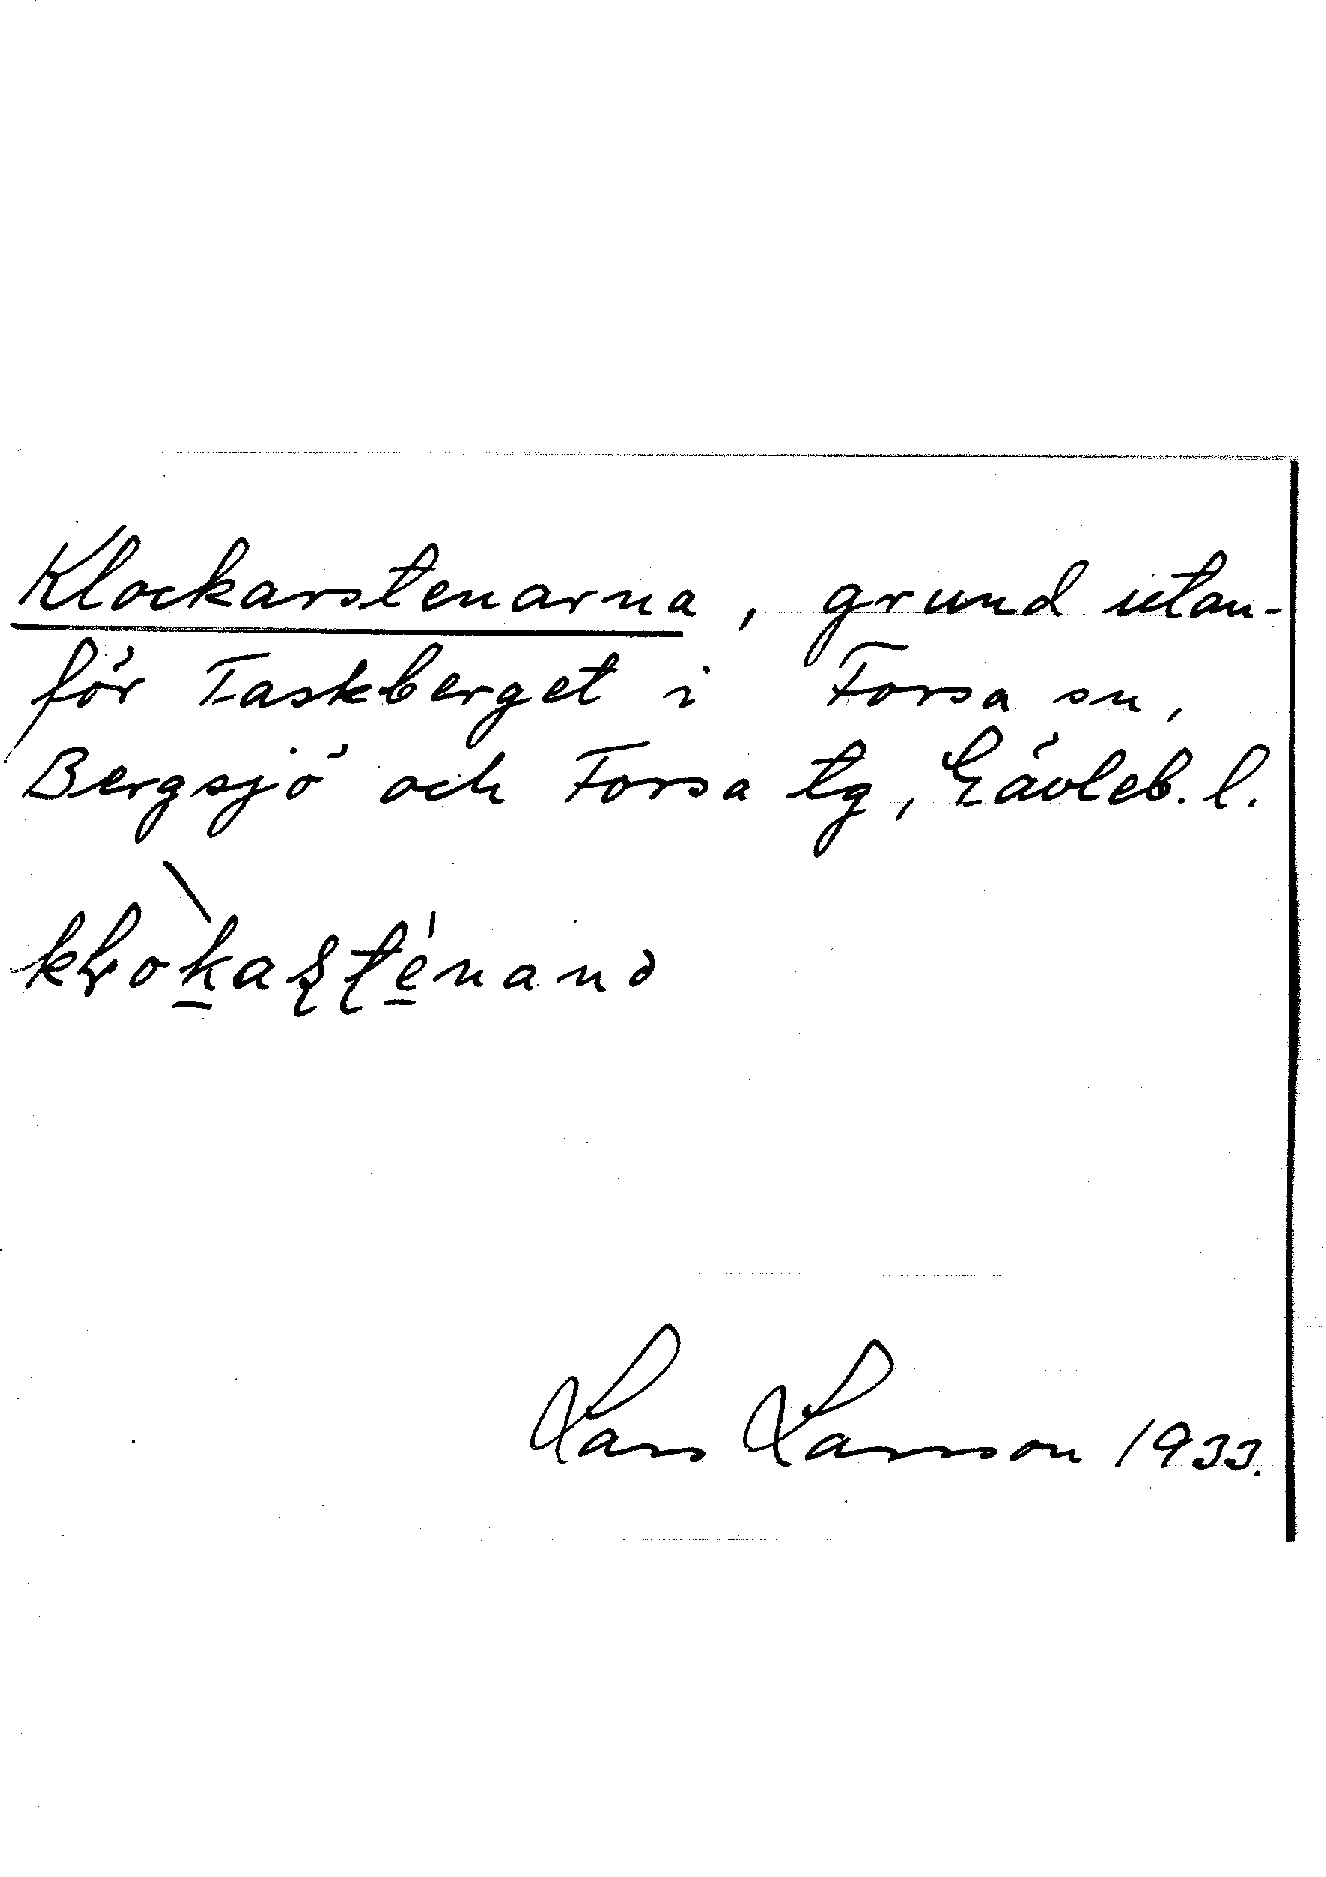 Klockarstenarna, grund utan-
för Taskberget i Forsa sn,
Bergsjö och Forsa tg, Gävleb. l.
Lars Larsson 1933.